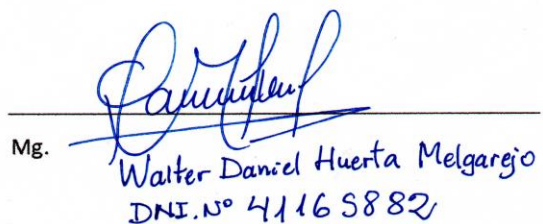 Mg.
Walter Daniel Huerta Melgarejo
DNI. Nº 41165882